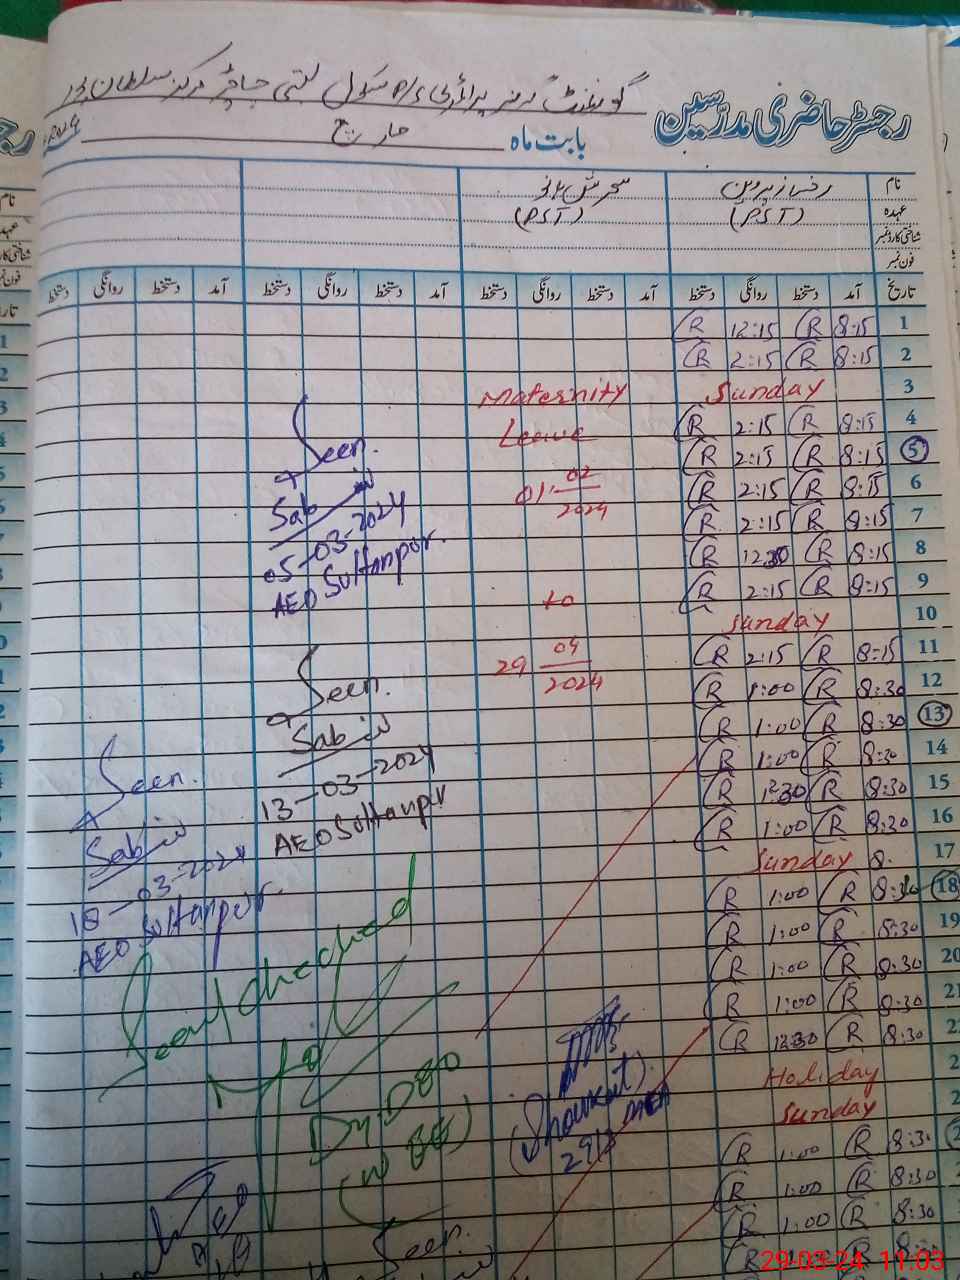 رجسٹر حاضری مدرسین
گورنمنٹ گرلز پرائمری سکول بستی چاچڑ مرکز سلطان پور
بابت ماہ مارچ 2024
نام رخسانہ پروین
عہدہ (PST) (PST)
شناختی کارڈ نمبر
فون نمبر
تاریخ آمد دستخط روانگی دستخط آمد دستخط روانگی دستخط آمد دستخط روانگی دستخط آمد دستخط روانگی دستخط
1 8:15 R 12:15 R
2 8:15 R 2:15 R
3 Sunday
4 8:15 R 2:15 R
5 8:15 R 2:15 R
6 8:15 R 2:15 R
7 8:15 R 2:15 R
8 8:15 R 12:30 R
9 8:15 R 2:15 R
10 Sunday
11 8:15 R 2:15 R
12 8:30 R 1:00 R
13 8:30 R 1:00 R
14 8:30 R 1:00 R
15 8:30 R 12:30 R
16 8:30 R 1:00 R
17 8. Sunday
18 8:30 R 1:00 R
19 8:30 R 1:00 R
20 8:30 R 1:00 R
21 8:30 R 1:00 R
8:30 R 12:30 R
Holiday
Sunday
8:30 R 1:00 R
8:30 R 1:00 R
8:30 R 1:00 R
Maternity
Leave
01-02
2024
to
29 04
2024
Seen.
Sabir
05-03-2024
AEO Sultanpur.
Seen.
Sabir
13-03-2024
AEO Sultanpur
Seen.
Sabir
18-03-2024
AEO Sultanpur.
Seen/checked
Dy DEO
(Shoukat)
MEA
Seen.
29-03-24 11:03